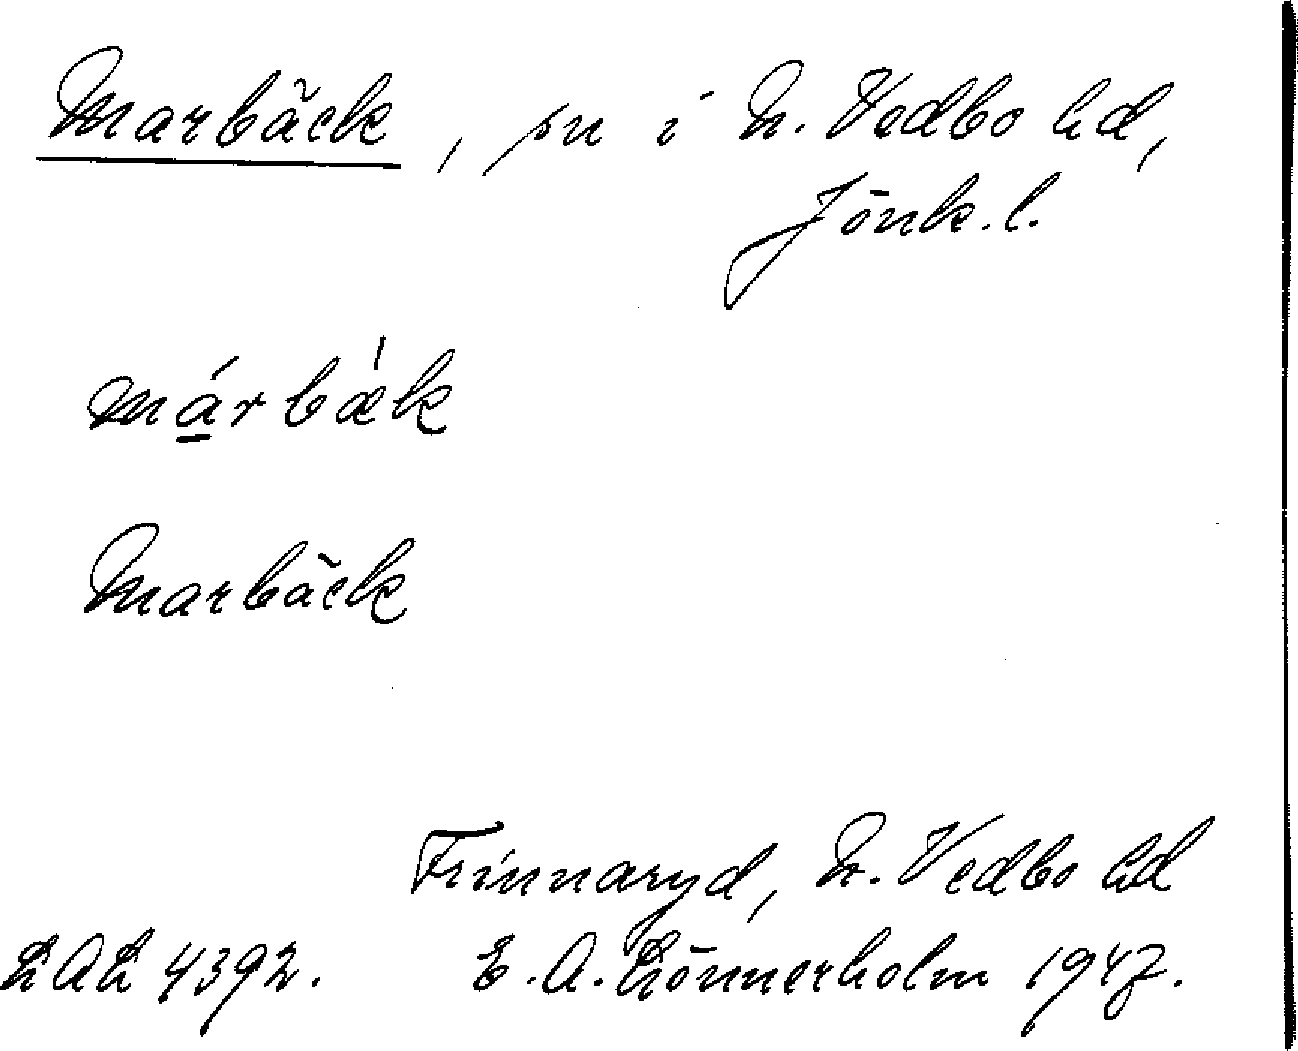 Marbäck, sn i N. Vedbo hd,
Jönk. l.
márbæ̍k
Marbäck
Frinnaryd, N. Vedbo hd
LAL 4392. E. A. Lönnerholm 1947.